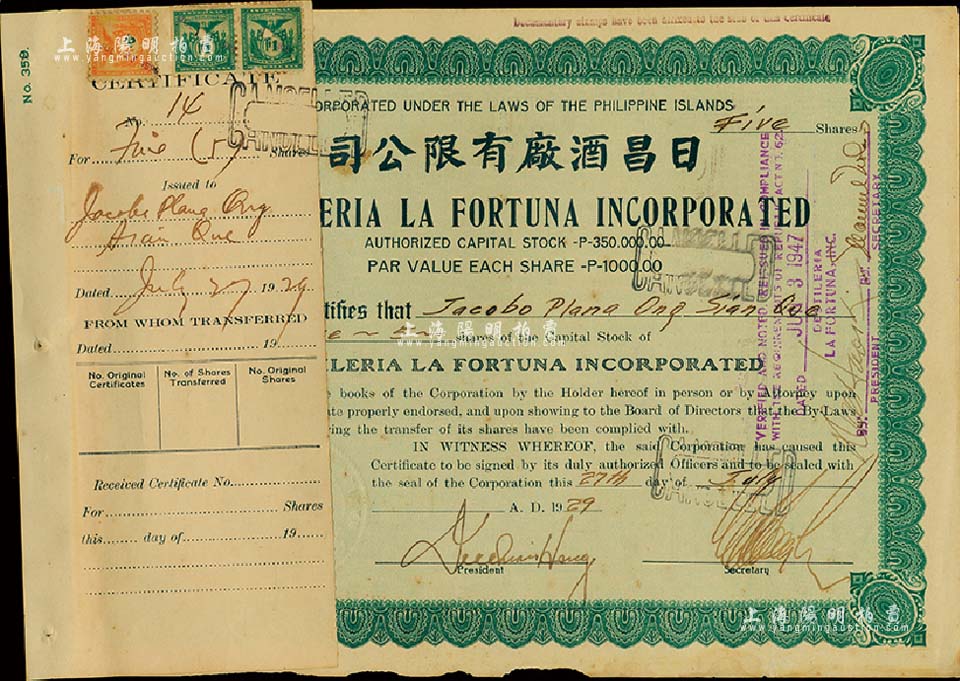 Documentary stamps have been affixed to the stub of this Certificate
上海陽明拍賣
www.yangmingauction.com
No. 358.
CERTIFICATE
No. 14
For Five (5) Shares
Issued to
Jacobo Plana Ong
Sian Que
Dated July 27 1929
FROM WHOM TRANSFERRED
Dated 19
No. Original Certificates
No. of Shares Transferred
No. Original Shares
Received Certificate No.
For Shares
this day of 19
CANCELLED
CANCELLED
ORPORATED UNDER THE LAWS OF THE PHILIPPINE ISLANDS
Five Shares
司公限有廠酒昌日
LERIA LA FORTUNA INCORPORATED
AUTHORIZED CAPITAL STOCK -P-350.000.00
PAR VALUE EACH SHARE -P-1000.00
CANCELLED
CANCELLED
tifies that Jacobo Plana Ong Sian Que
shares of the Capital Stock of
上海陽明拍賣
www.yangmingauction.com
LLERIA LA FORTUNA INCORPORATED
e books of the Corporation by the Holder hereof in person or by Attorney upon
te properly endorsed, and upon showing to the Board of Directors that the By-Laws
ing the transfer of its shares have been complied with.
IN WITNESS WHEREOF, the said Corporation has caused this
Certificate to be signed by its duly authorized Officers and to be sealed with
the seal of the Corporation this 27th day of July
A. D. 1929
CANCELLED
CANCELLED
President
Secretary
VERIFIED AND NOTED REISSUED IN COMPLIANCE
WITH THE REQUIREMENTS OF REPUBLIC ACT NO. 62
DATED 3 1947
DESTILERIA
LA FORTUNA, INC.
BY:
PRESIDENT
BY:
SECRETARY
上海陽明拍賣
www.yangmingauction.com